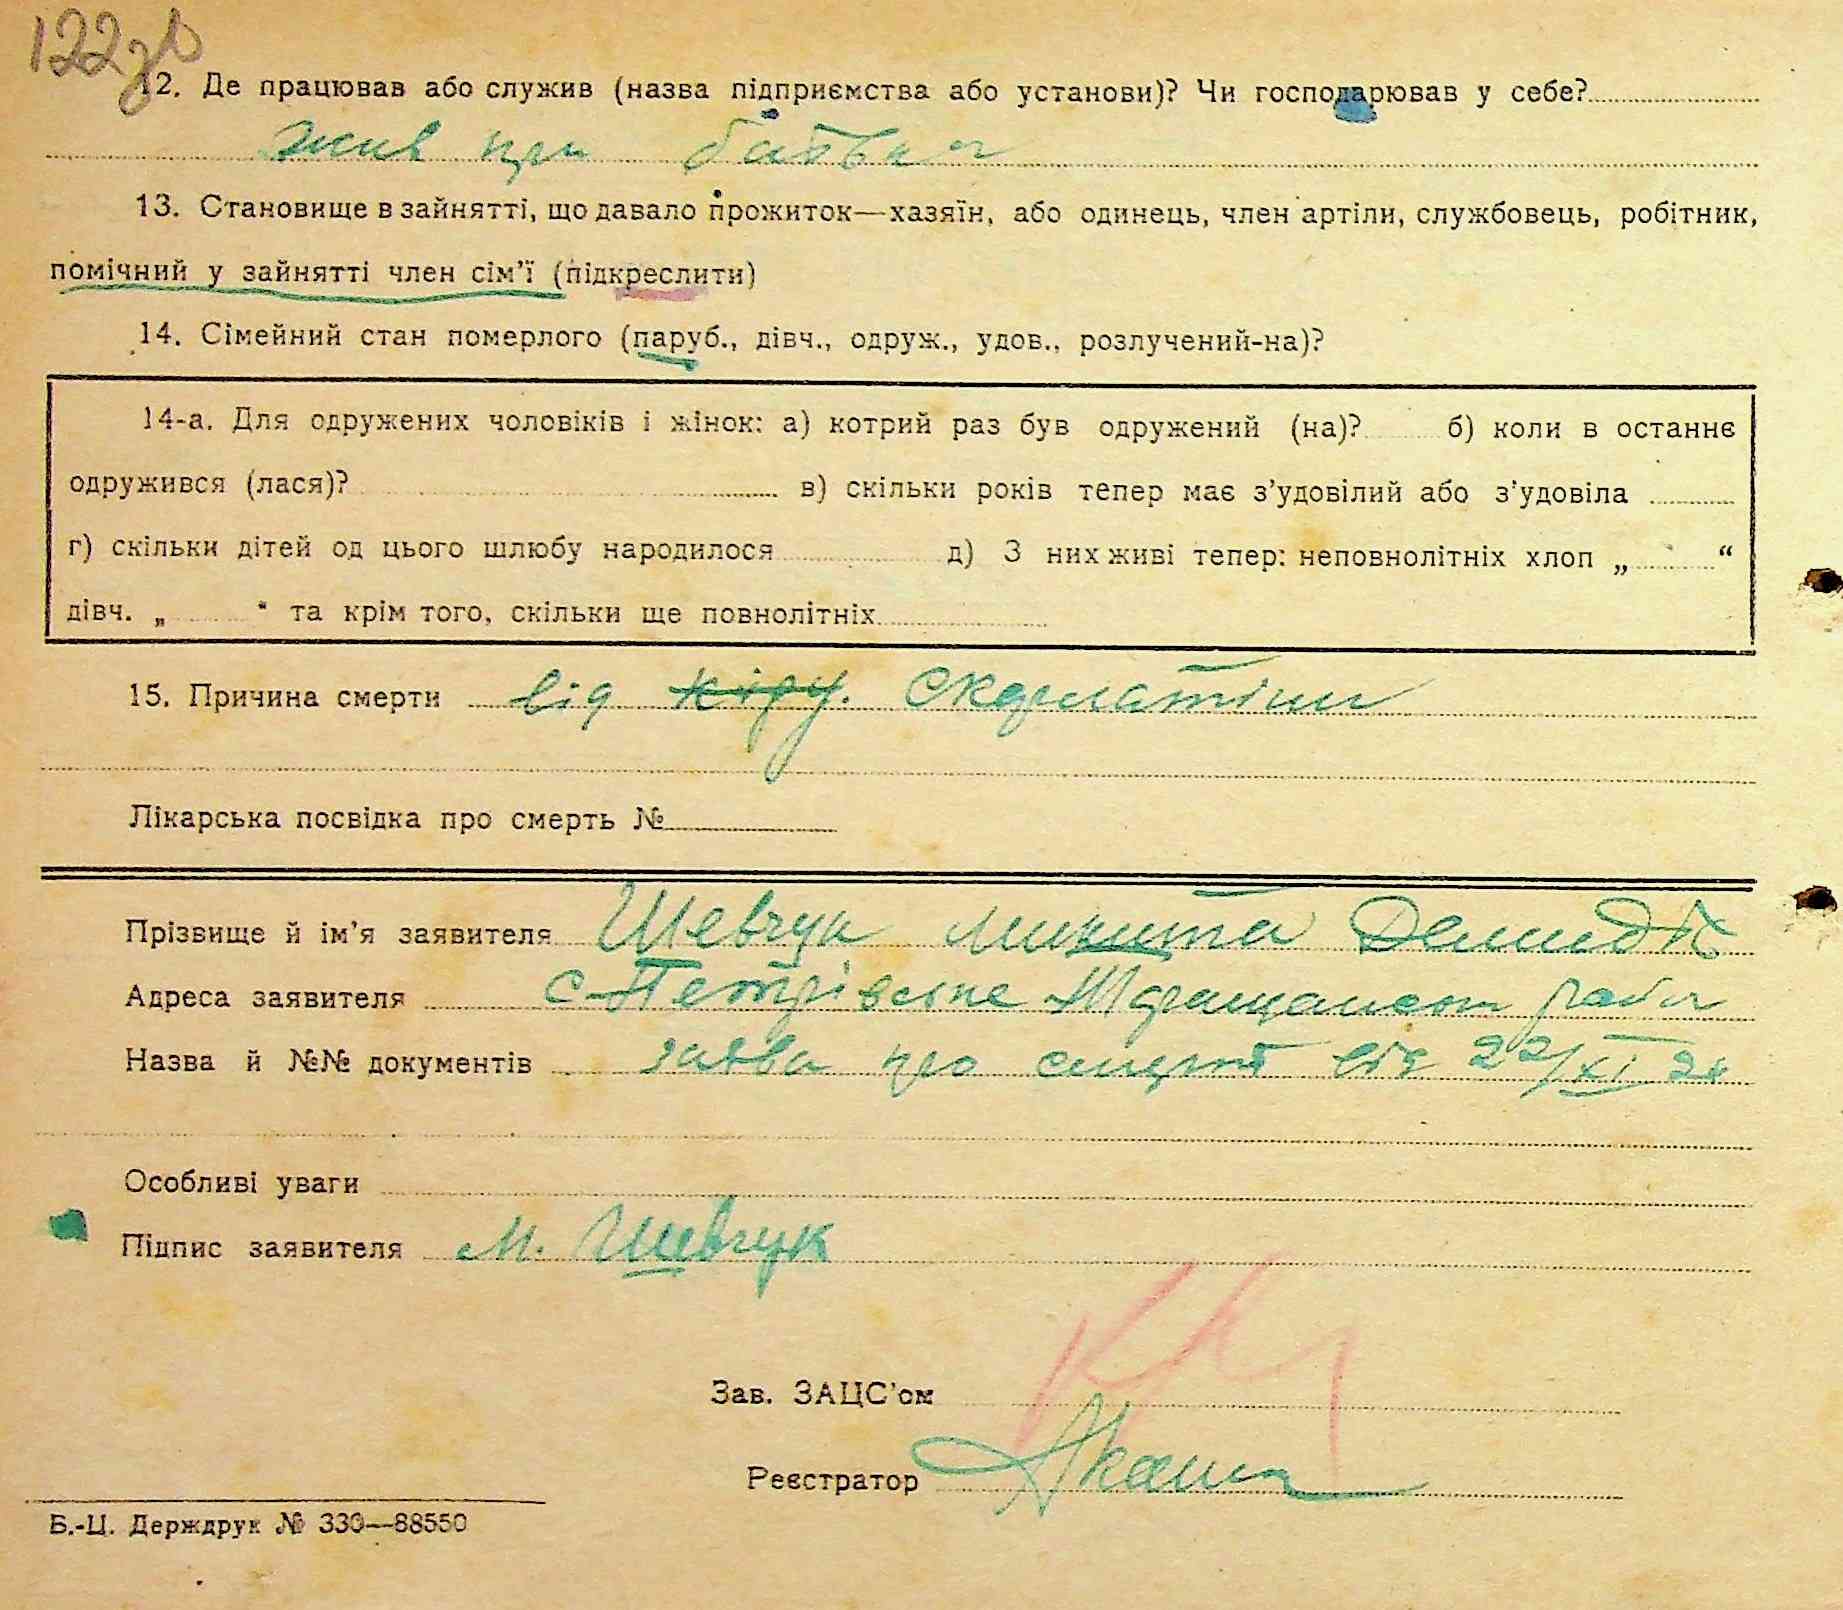 122зв
12. Де працював або служив (назва підприємства або установи)? Чи господарював у себе?
жив при батьках
13. Становище в зайнятті, що давало прожиток—хазяїн, або одинець, член артіли, службовець, робітник,
помічний у зайнятті член сім’ї (підкреслити)
14. Сімейний стан померлого (паруб., дівч., одруж., удов., розлучений-на)?
14-а. Для одружених чоловіків і жінок: а) котрий раз був одружений (на)? б) коли в останнє
одружився (лася)? в) скільки років тепер має з’удовілий або з’удовіла
г) скільки дітей од цього шлюбу народилося д) З них живі тепер: неповнолітніх хлоп „ “
дівч. „ “ та крім того, скільки ще повнолітніх
15. Причина смерти від кіру. Скарлатіни
Лікарська посвідка про смерть №
Прізвище й ім’я заявителя Шевчук Микита Демидів
Адреса заявителя с-Петрівське Таращанськ району
Назва й №№ документів заява про смерть від 22/XI
Особливі уваги
Підпис заявителя М. Шевчук
Зав. ЗАЦС’ом
Реєстратор
Б.-Ц. Держдрук № 330—88550